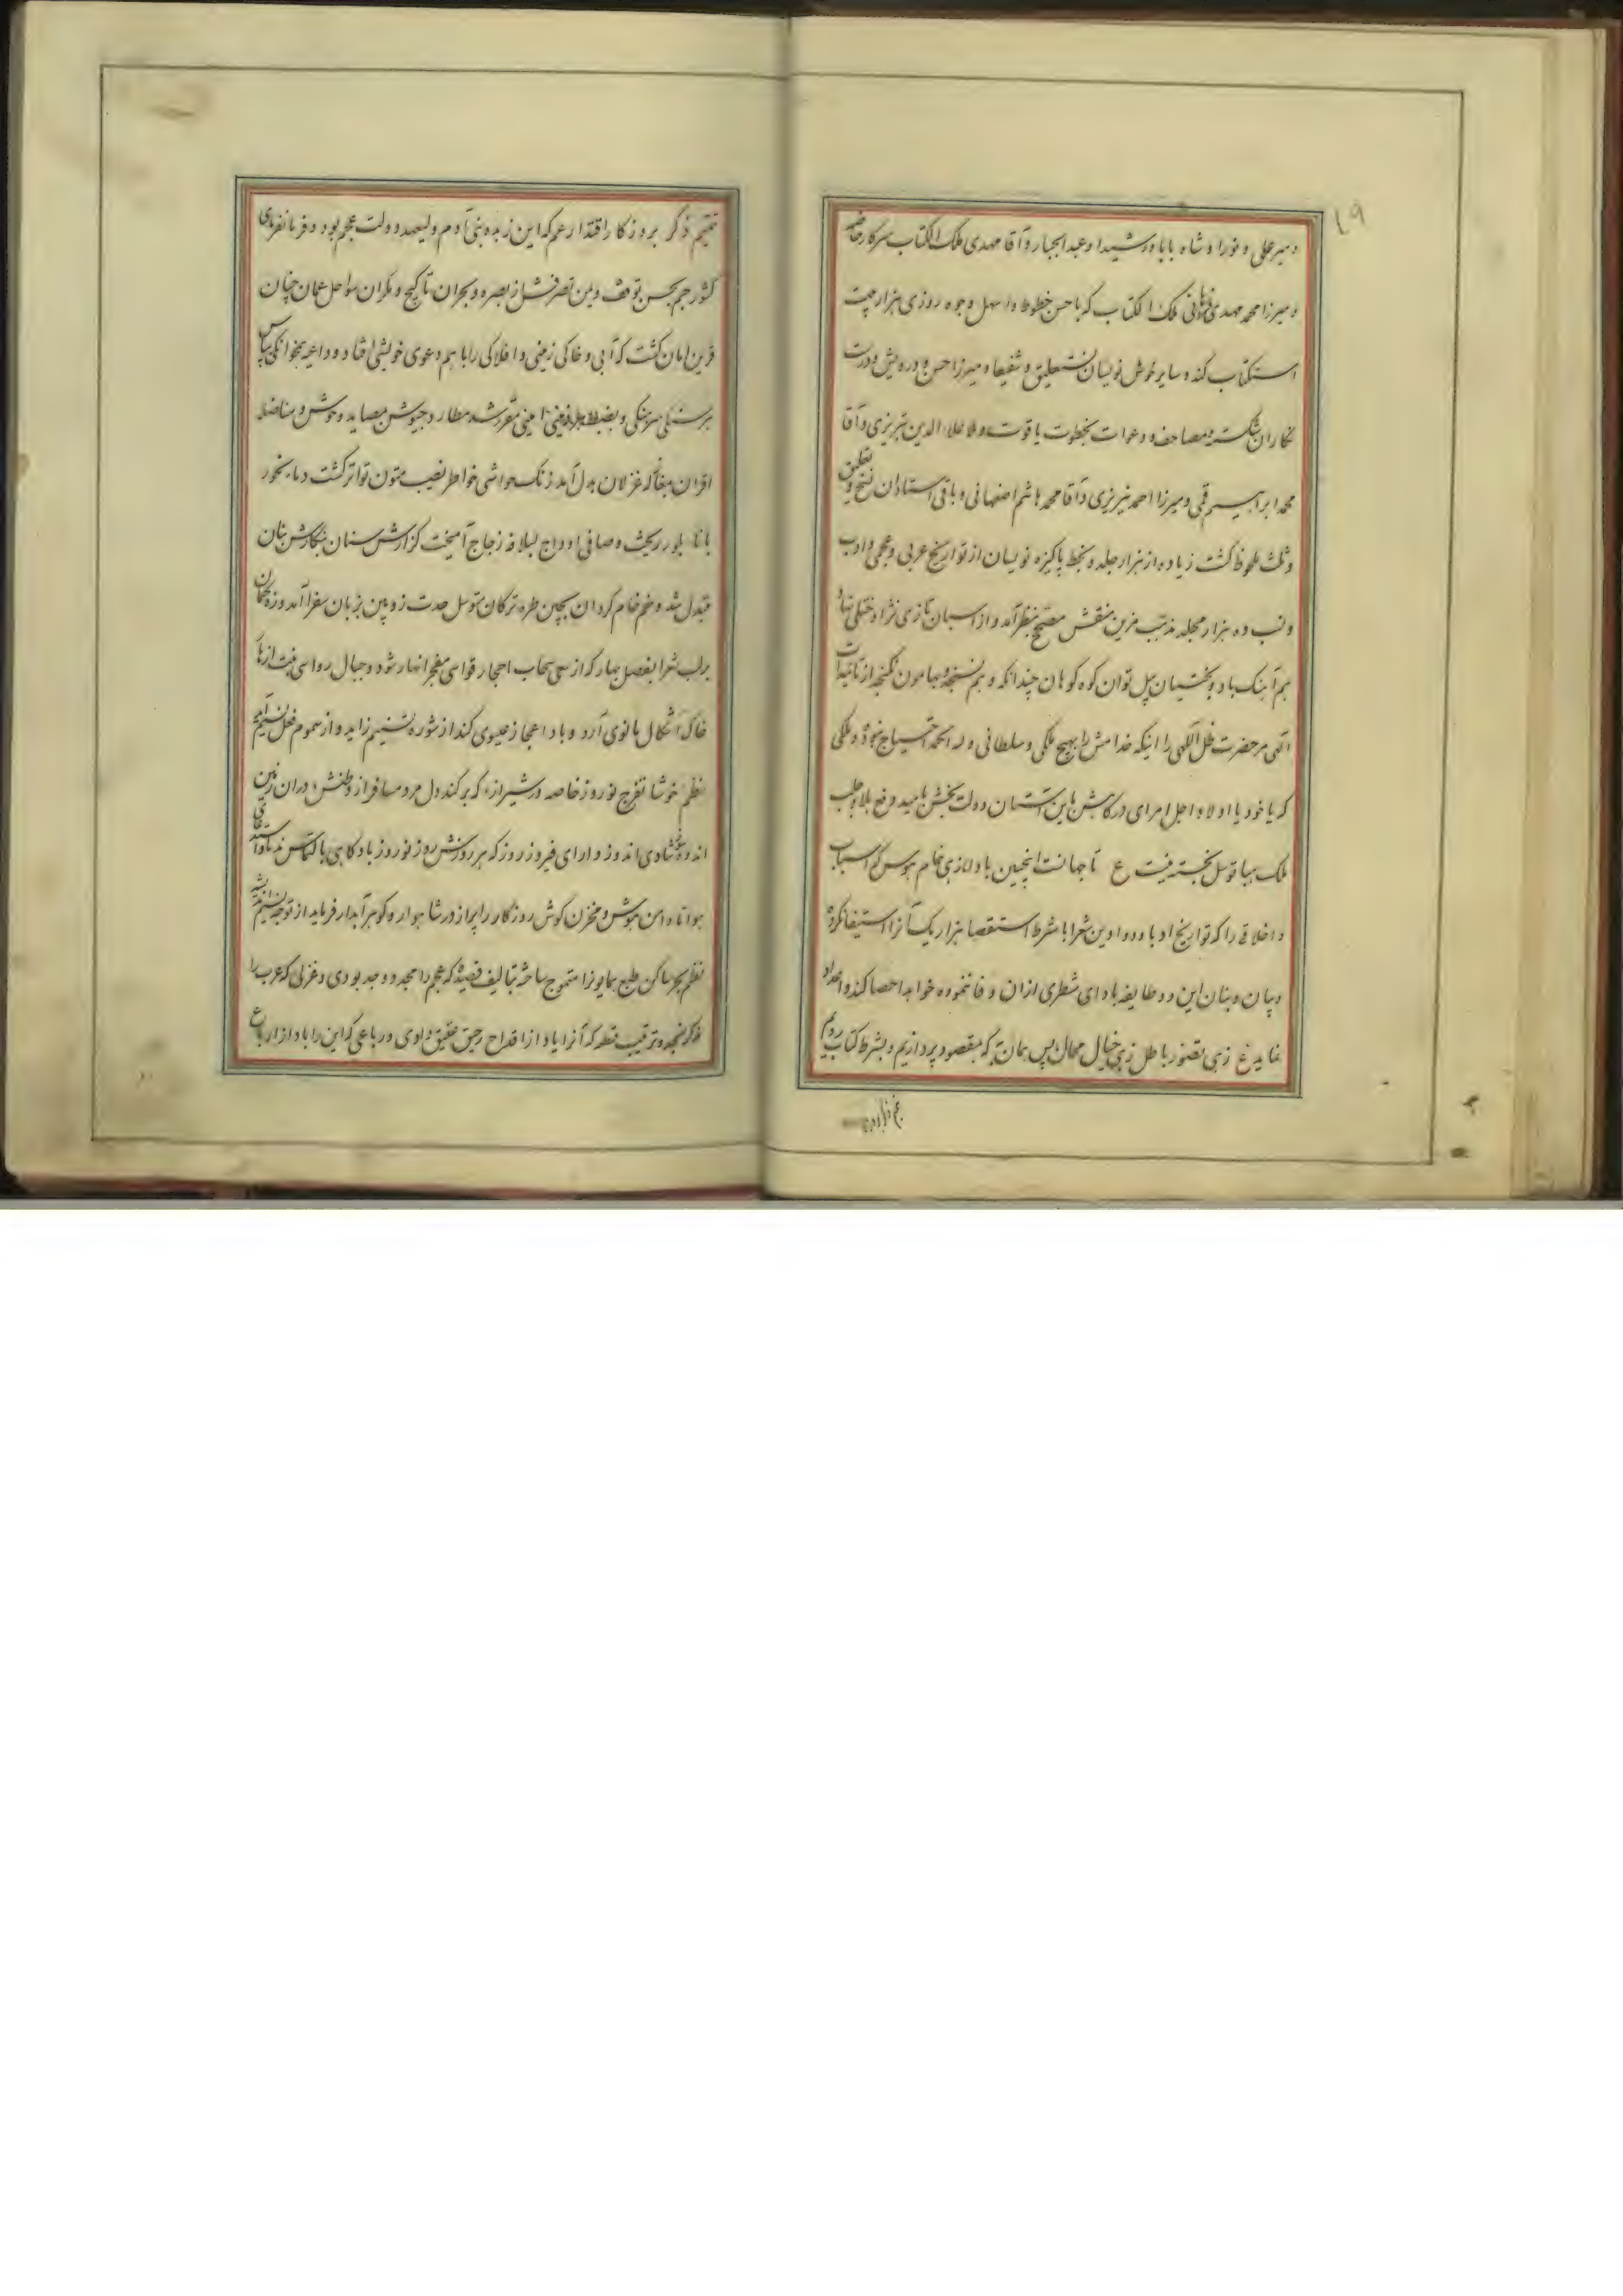 ۱۹
و میر علی و نورا و شاه بابا و رشیدا و عبد الجبار و آقا مهدی ملک الکتاب سرکار خاصه
و میرزا محمد مهدی ملک الکتاب که با حسن خطوط و اسهل وجوه روزی هزار بیت
استکتاب کند و سایر خوش نویسان نستعلیق و شفیعا و میرزا حسن و درویش و درست
نگاران شکسته و مصاحف و دعوات بخطوت یاقوت و ملا علاء الدین تبریزی و آقا
محمد ابراهیم قمی و میرزا احمد نیریزی و آقا محمد هاشم اصفهانی و باقی استادان نسخ و تعلیق
و ثلث ملحوظ گشت زیاده از هزار جلد و بخط پاکیزه نویسان از تواریخ عربی و عجمی و ادب
و نسب ده هزار مجلد مذهب مزین منقش مصحح بنظر آمد و از اسبان تازی نژاد ختلی نهاد
هم آهنک باد و بختیان پیل توان کوه کوهان چندانکه وهم نسنجد و بهامون نگنجد از تائیدات
الهی مر حضرت ظل اللهی را اینکه خدامش را بهیچ ملکی و سلطانی وله الحمد احتیاج نبوده و ملکی
که یا خود یا اولاد و اجل امرای درگاهش باین آستان دولت بخش بامید دفع بلا و جلب
ملک بها توسل نجسته نیست ع تا جهانست اینچنین باد از زهی خام هوس که اسباب
و اخلاقی را که تواریخ ادبا و دواوین شعرا با شرط استقصا هزار یک آنرا استیفا نکرده
و بیان و بنان این دو طایفه بادای شطری ازان وفا ننموده خواهد احصا کند و اعداد
نماید ع زهی تصور باطل زهی خیال محال پس همان به که بمقصود پردازیم و بشرط کتاب رویم
تتمیم ذکر بروزکار اقتدار عم که این زبده بنی آدم ولیعهد دولت عجم بود و فرمانفرمای
کشور جم بحسن توقف و یمن تصرفش از بصره و بحرین تا کیچ و مکران سواحل عمان چنان
قرین امان گشت که آبی و خاکی زمینی و افلاکی را با هم دعوی خویشی افتاد و داعیه همخوانگی بپاس
هر سرهنگی و بضبط هر زمینی امینی مقرر شد مطارد جیوش بمصاید وحوش و مناضله
اقران بمغازله غزلان بدل آمد زنک حواشی خواطر نصیب متون تواتر گشت دماء نحور
بانا بلور ریخت و صافی اوداج بسلافه زجاج آمیخت گزارش سنان بنگارش بنان
مبدل شد و خم خام گردان بچین طره ترکان متوسل حدت زوبین بزبان سفرا آمد و زه کمان
برلب شعرا بفصل بهار که از سعی سحاب احجار قواسی مفجر انهار شود و جبال رواسی منبت ازهار
خاک اشکال مانوی آرد و باد اعجاز عیسوی کند از شوره تسنیم زاید و از سموم فعل نسیم آید
نظم خوشا تفرج نوروز خاصه در شیراز که برکند دل مرد مسافر از وطنش دران زمین
اندوه شادی اندوز دارای فیروز روز که هر روزش روز نوروز باد کاهی با التماس ندما و استدعای
هوا تا دامن هوش و مخزن گوش روزگار را پر از در شاهوار و گوهر آبدار فرماید از توجه نسیم اندیشه
نظم بحر ساکن طبع همایونرا متموج ساخته بتالیف قصیده که عجم را مجد و وجد بودی و غزلی که عرب را
فکر نجد و ترتیب قطعه که آنرا یاد از اقداح رحیق عقیق دادی و رباعی که این را باد از ارباع